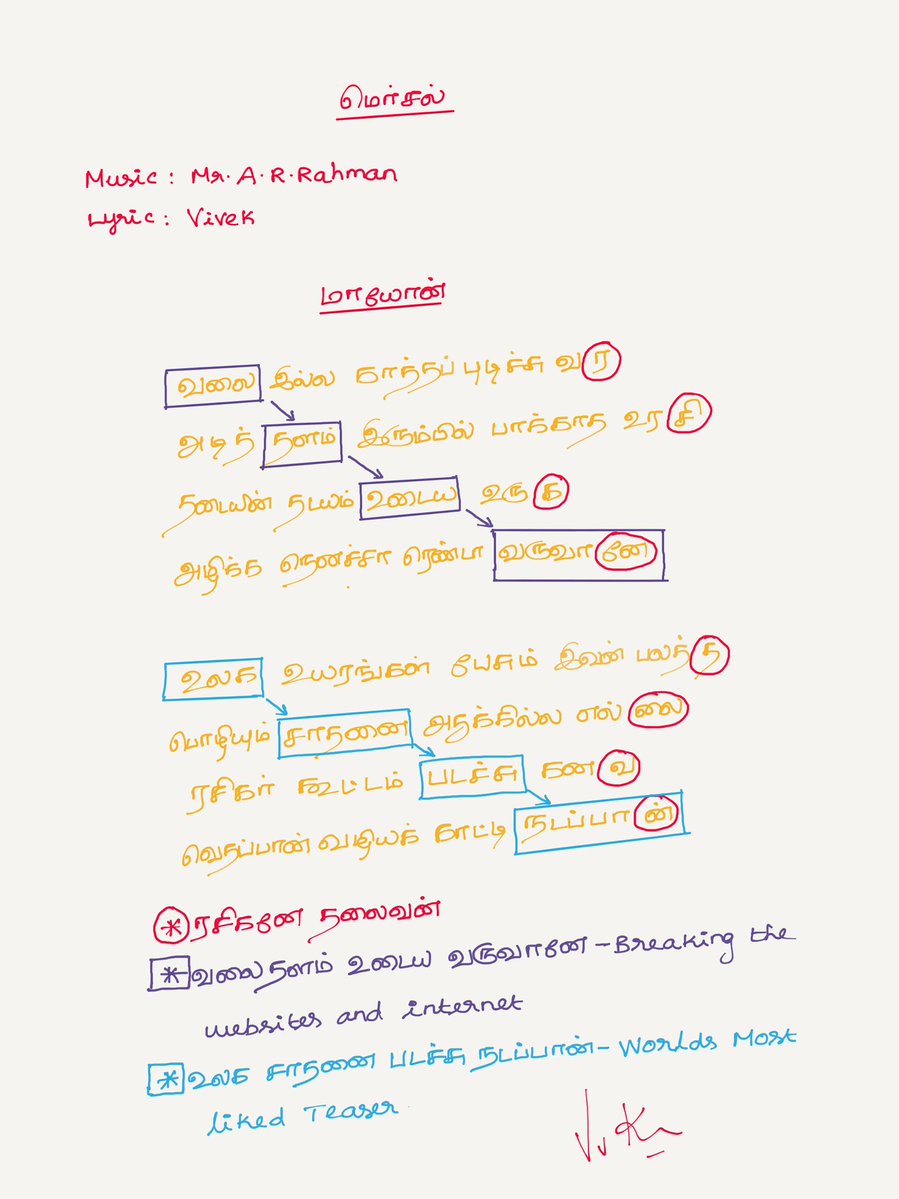 மெர்சல்
Music : Mr. A. R. Rahman
Lyric : Vivek
மாயோன்
வலை இல்ல காத்தப் புடிச்சு வர
அடித் தளம் இரும்பில் பாக்காத உரசி
தடையின் தடயம் உடைய உருக
அழிக்க நெனச்சா ரெண்டா வருவானே
உலக உயரங்கள் பேசும் இவன் பலத்த
பொழியும் சாதனை அதக்கில்ல எல்லை
ரசிகர் கூட்டம் படச்சு கனவ
வெதப்பான் வழியக் காட்டி நடப்பான்
* ரசிகனே தலைவன்
* வலைதளம் உடைய வருவானே - Breaking the
websites and internet
* உலக சாதனை படச்சு நடப்பான் - Worlds Most
liked Teaser.